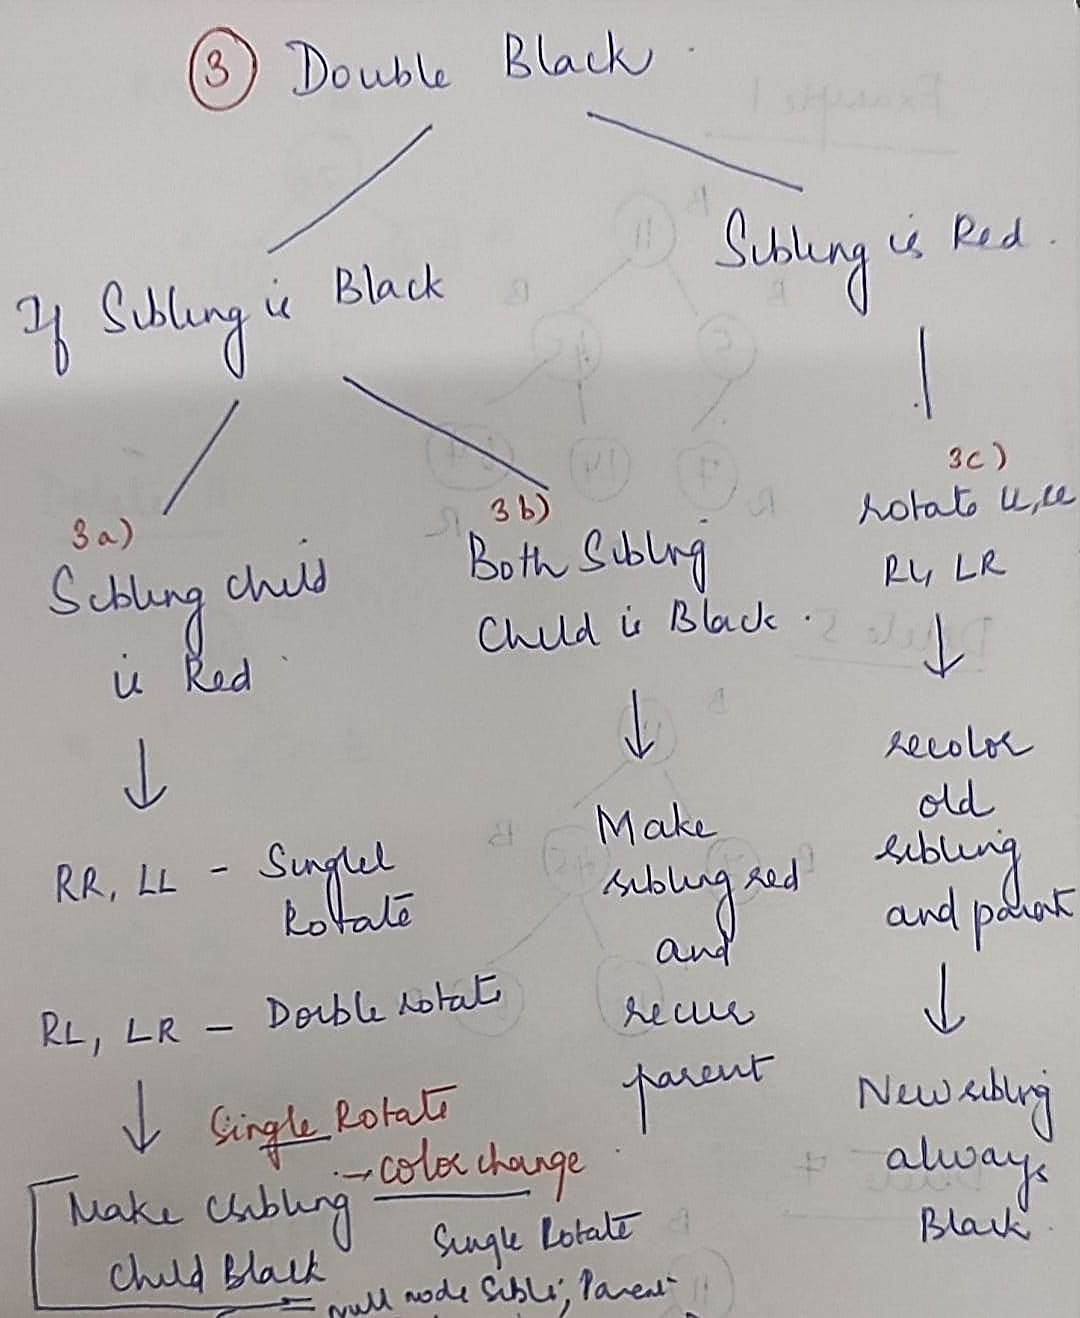 3 Double Black
If Sibling is Black
Sibling is Red.
3a)
Sibling child
is Red
RR, LL - Singlel
Rotate
RL, LR - Double rotate
Single Rotate
→ color change
Make sibling
child Black
Single Rotate
null node Sibli, Parent
3b)
Both Sibling
Child is Black.
Make
sibling red
and
recur
parent
3c)
rotate
RL, LR
recolor
old
sibling
and parent
New sibling
always
Black.
Example 1
11
14
7
Delete 5